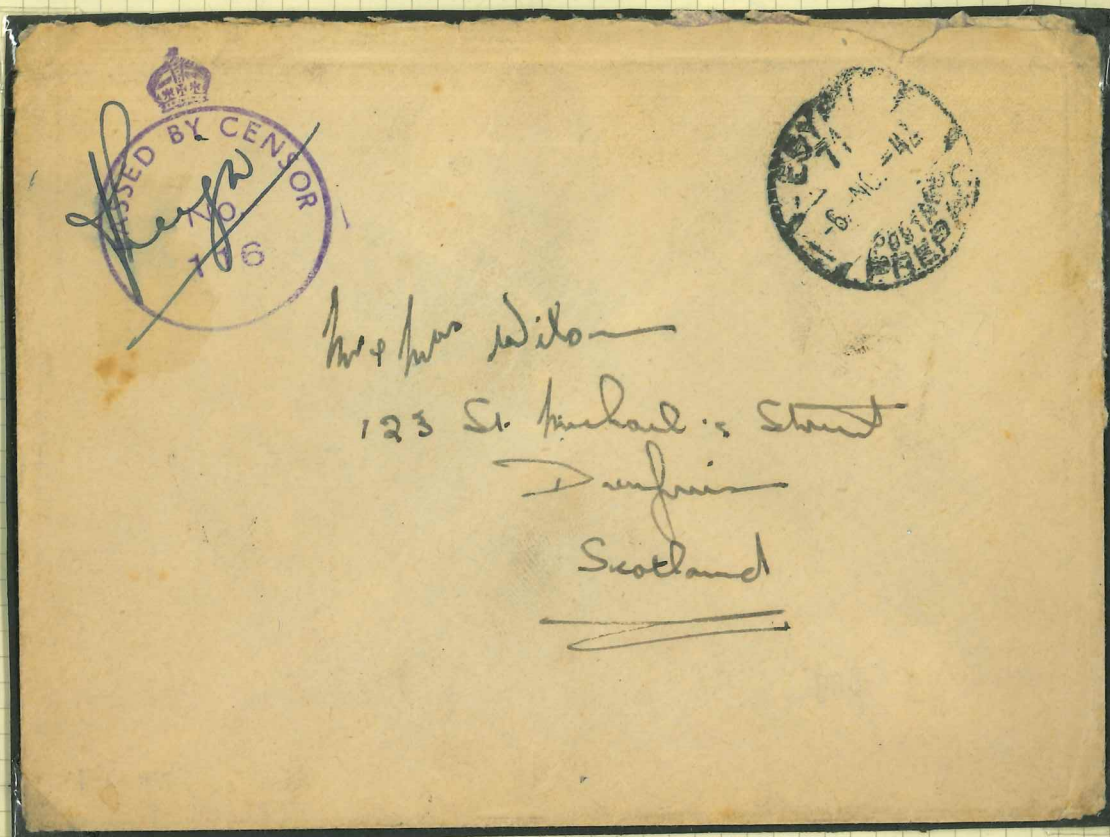 PASSED BY CENSOR
No
EGYPT 71
-6.NO.-42
POSTAGE
PREPAID
Mr & Mrs Wilson
123 St. Michael's Street
Dumfries
Scotland